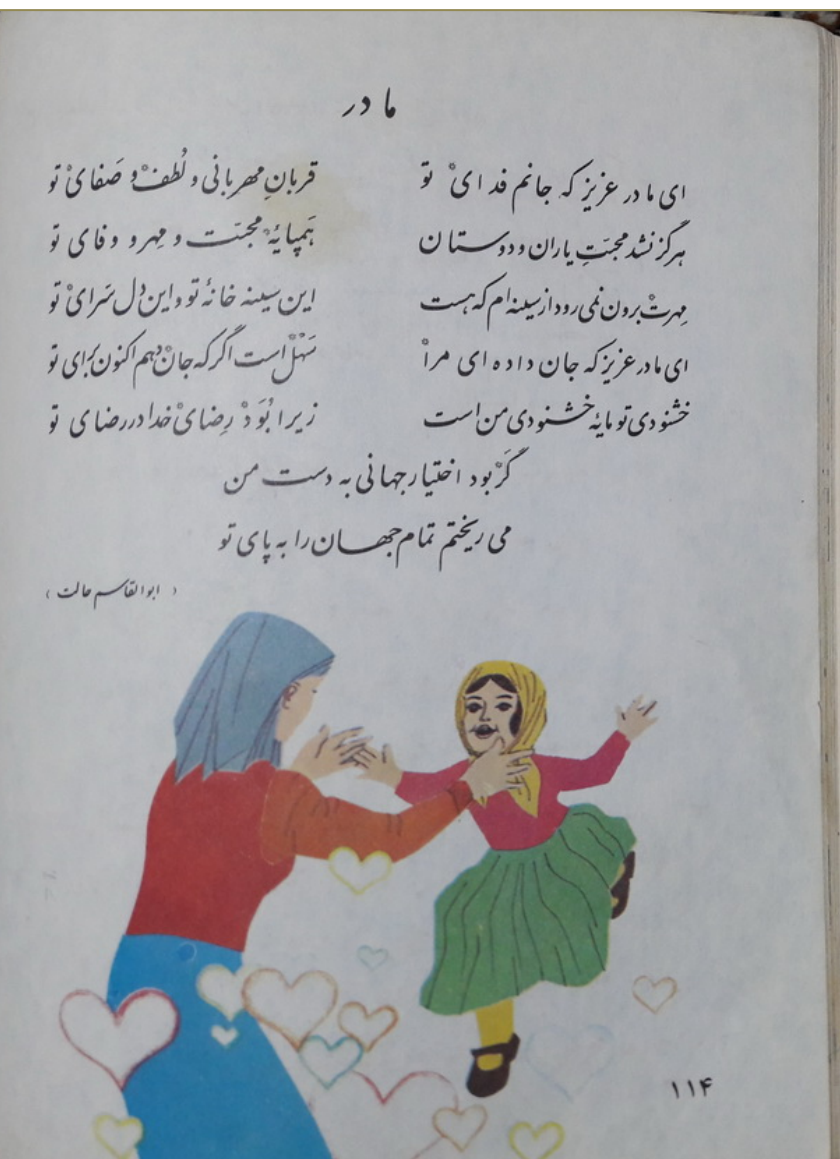 مادر
ای مادر عزیز که جانم فدایْ تو قربانِ مهربانی و لُطفْ و صَفایْ تو
هرگز نشد محبّتِ یاران و دوستان هَمپایهٔ محبّت و مهر و وفای تو
مِهرتْ برون نمی‌رود از سینه‌ام که هست این سینه خانهٔ تو و این دل سَرایْ تو
ای مادر عزیز که جان داده‌ای مراْ سَهْلْ است اگر که جان دهم اکنون برای تو
خشنودی تو مایهٔ خشنودی من است زیرا بُوَدْ رِضایْ خدا در رضای تو
گَرْ بود اختیار جهانی به دست من
می‌ریختم تمام جهان را به پای تو
( ابوالقاسم حالت )
۱۱۴